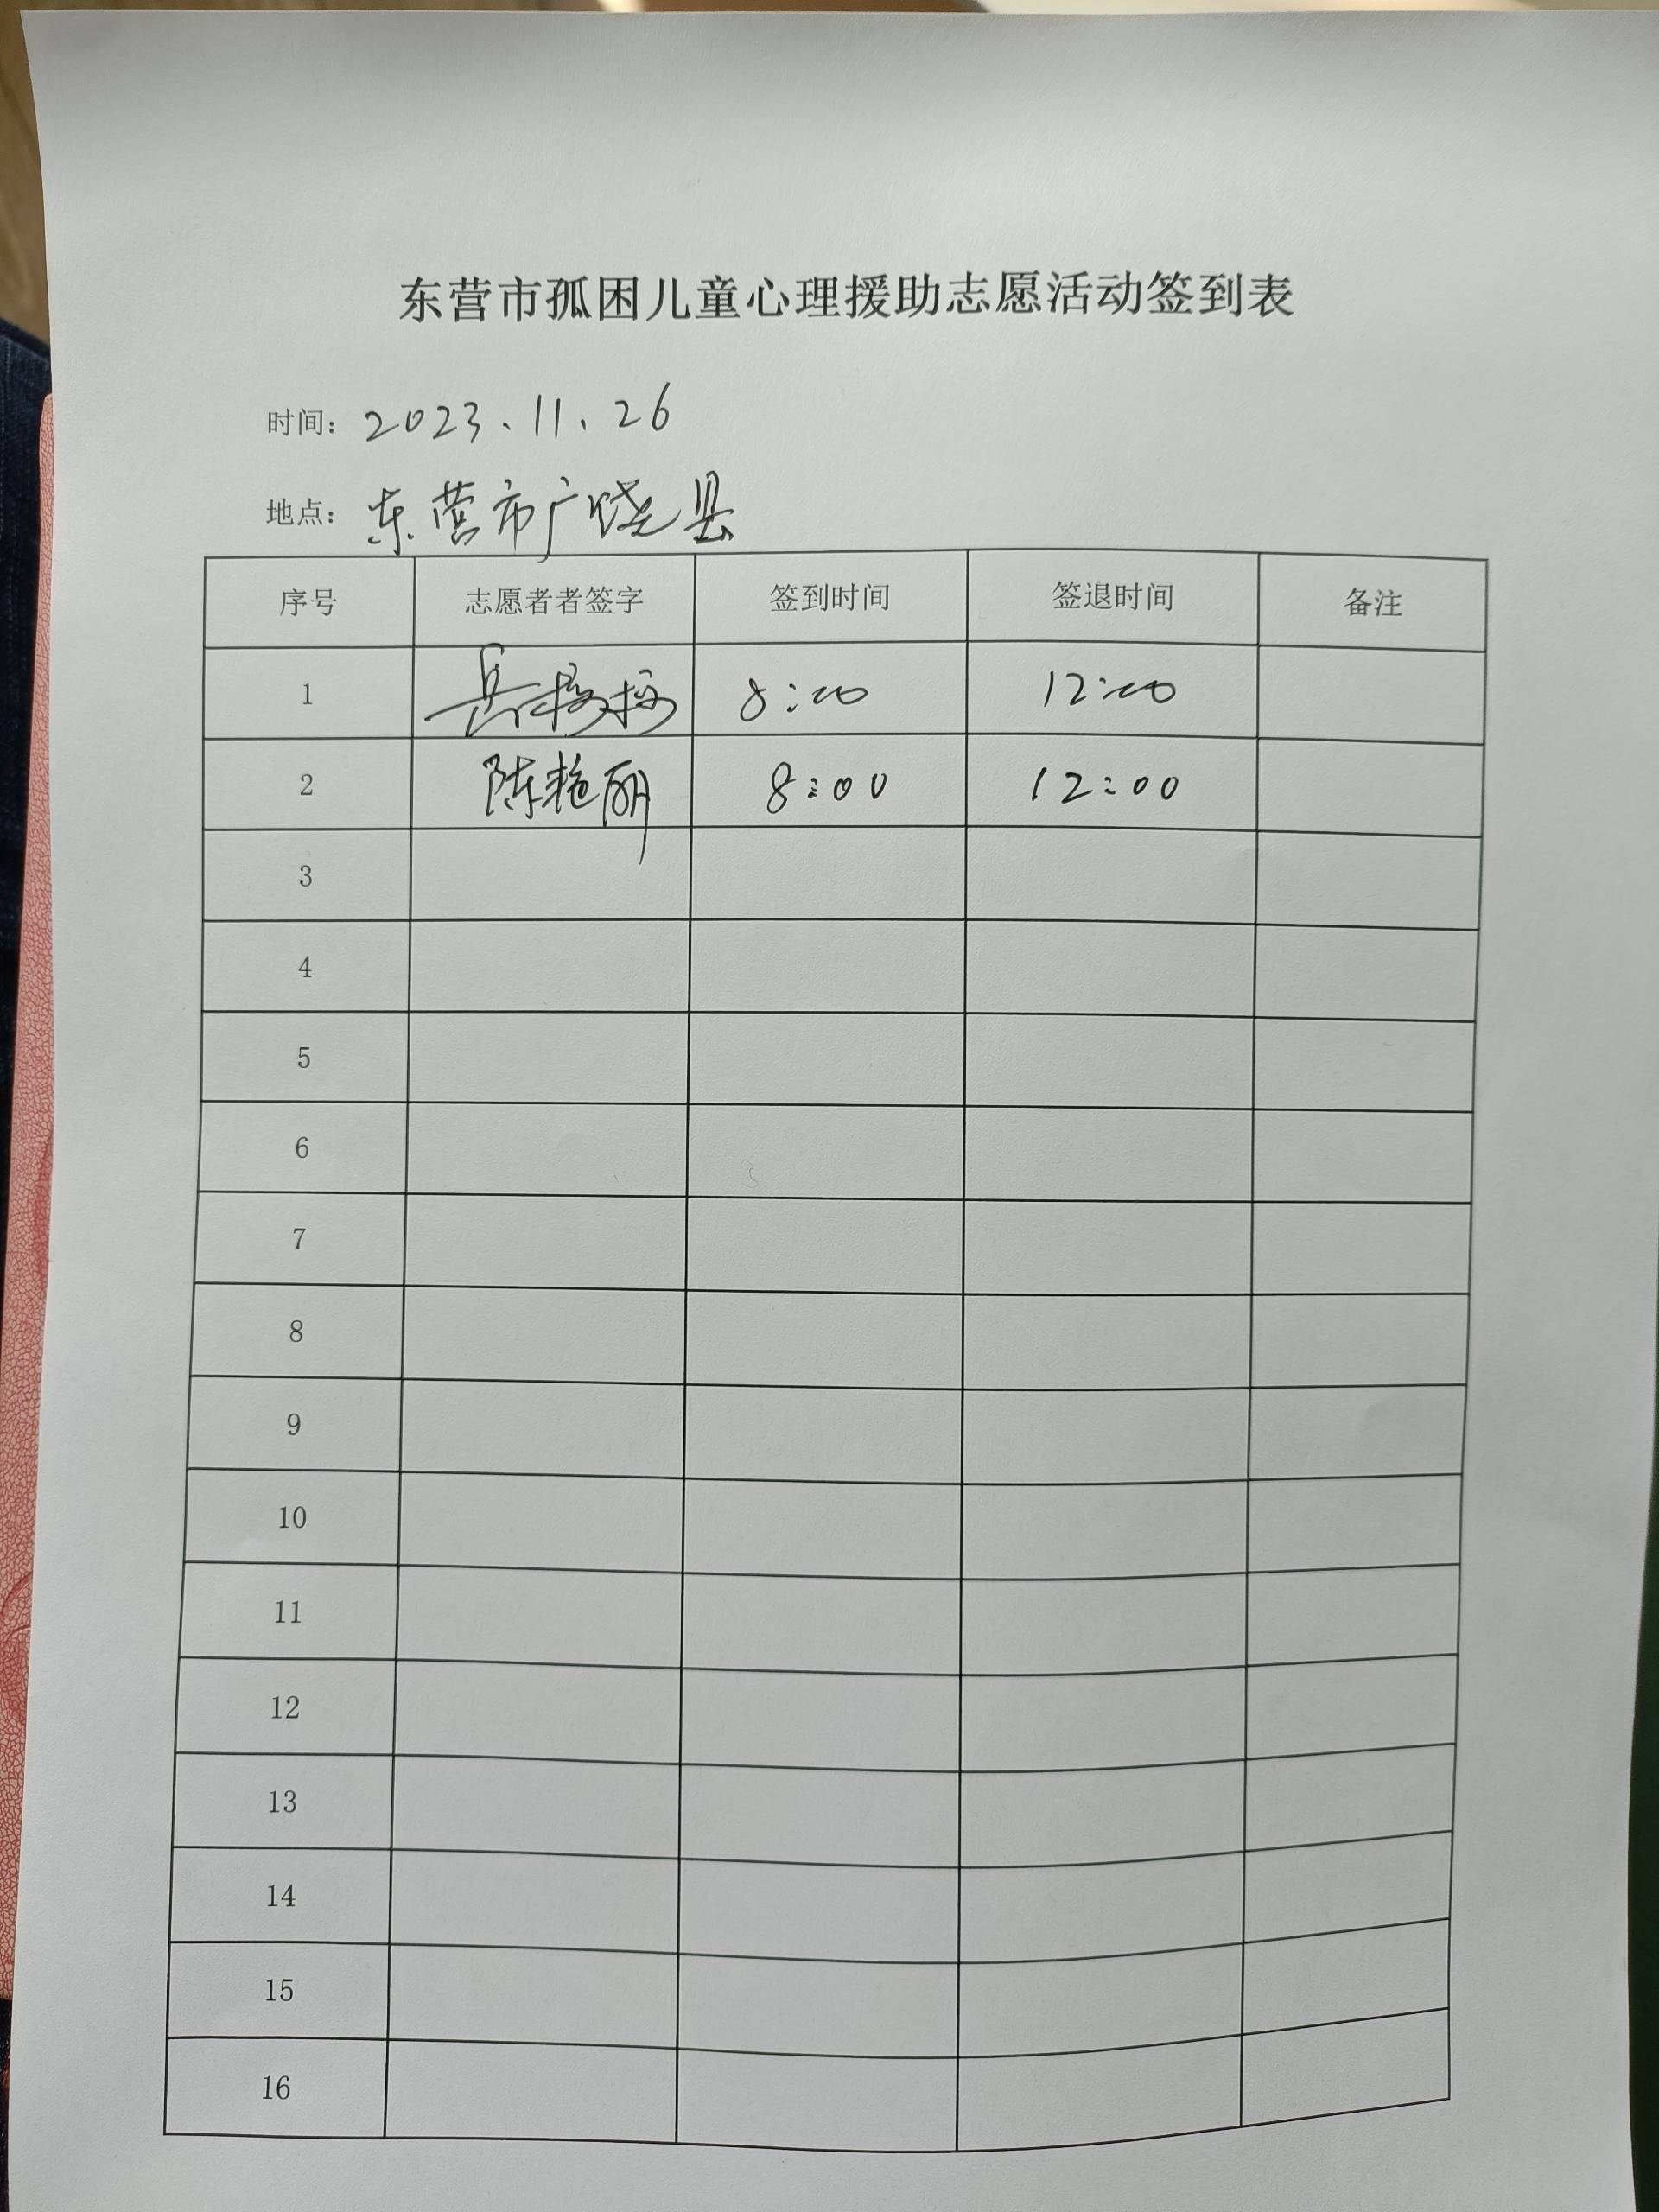 东营市孤困儿童心理援助志愿活动签到表
时间: 2023.11.26
地点: 东营市广饶县
序号 志愿者者签字 签到时间 签退时间 备注
1 8:00 12:00
2 陈艳丽 8:00 12:00
3
4
5
6
7
8
9
10
11
12
13
14
15
16